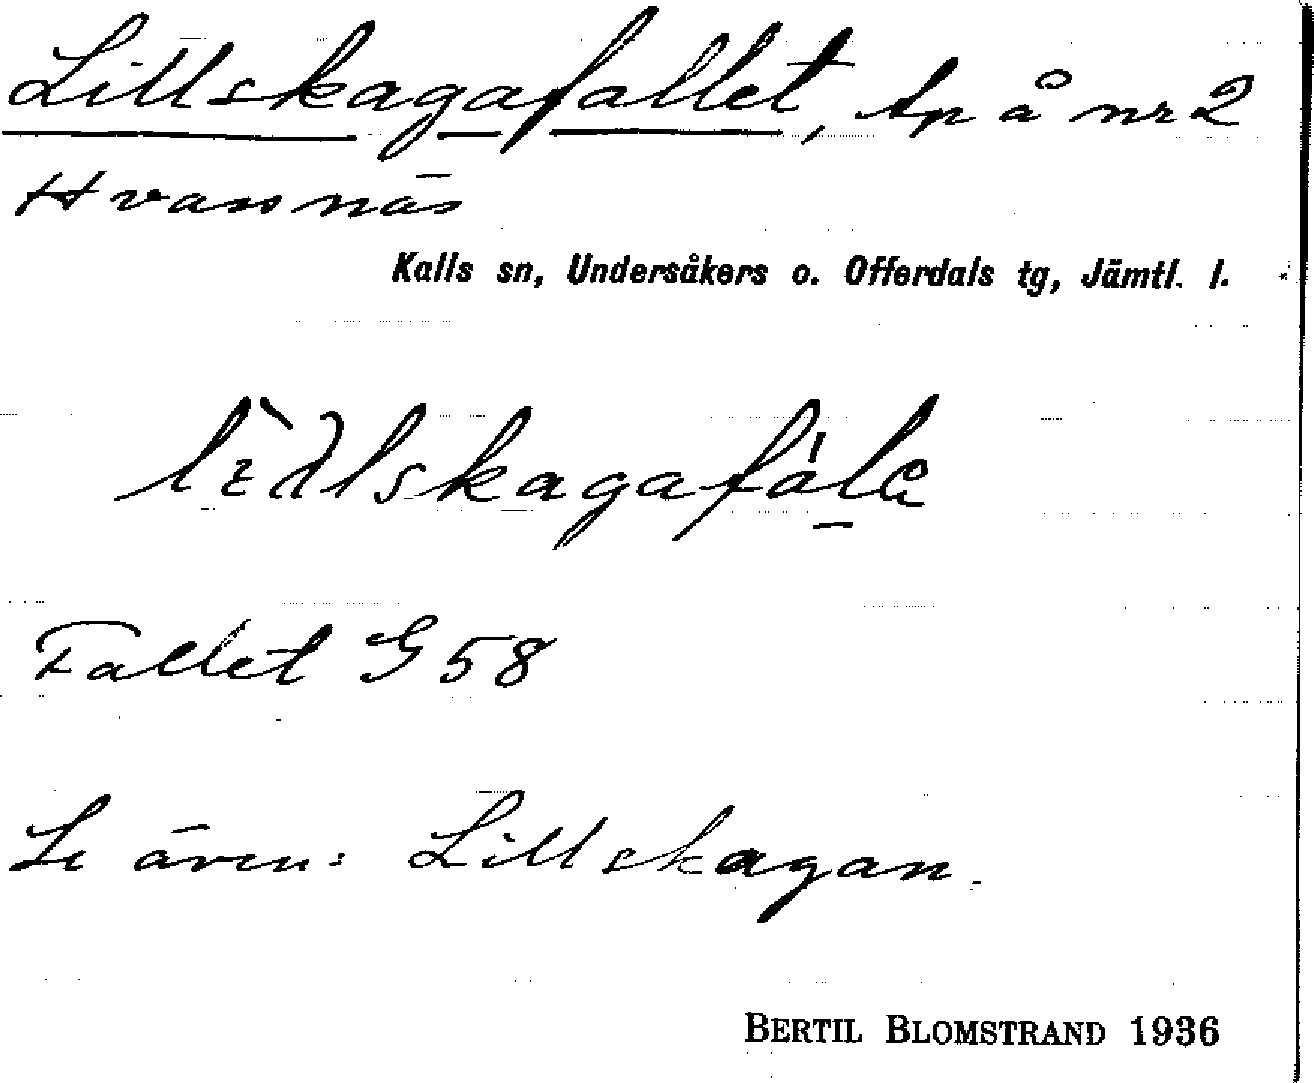 Lillskagafallet, tp å nr 2
Hvassnäs
Kalls sn, Undersåkers o. Offerdals tg, Jämtl. l.
Fallet G 58
Se även: Lillskagan.
BERTIL BLOMSTRAND 1936